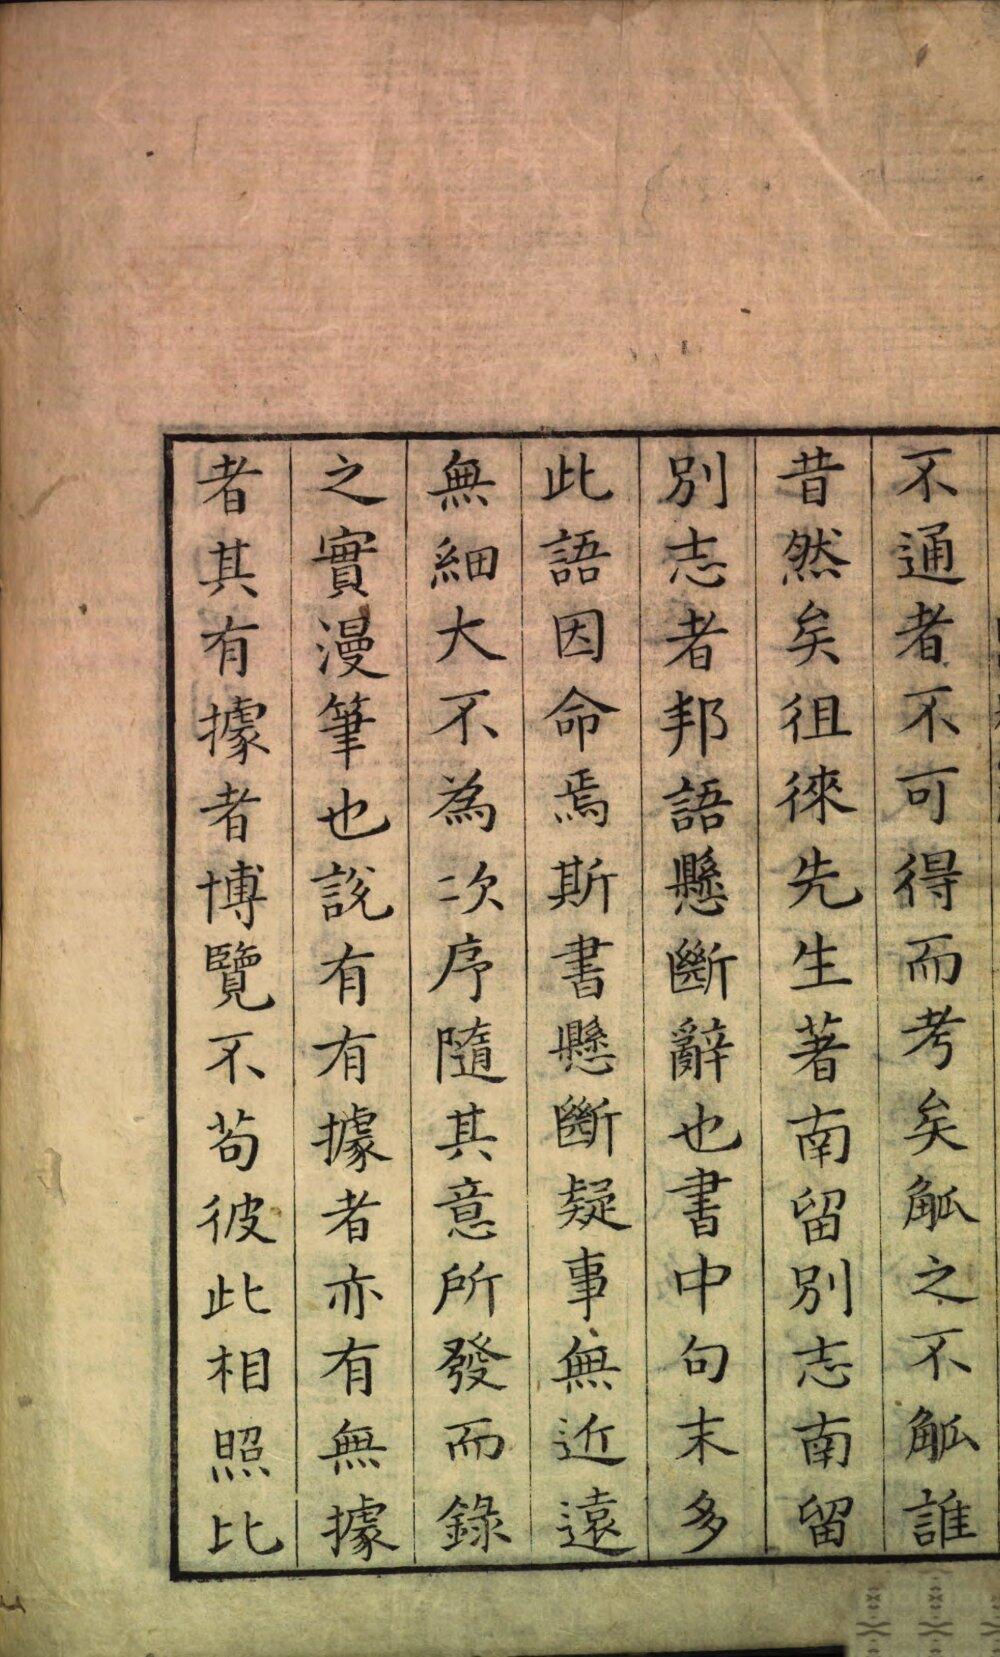 不通者不可得而考矣觚之不觚誰
昔然矣徂徠先生著南留別志南留
別志者邦語懸斷辭也書中句末多
此語因命焉斯書懸斷疑事無近遠
無細大不為次序隨其意所發而錄
之實漫筆也説有有據者亦有無據
者其有據者博覽不苟彼此相照比